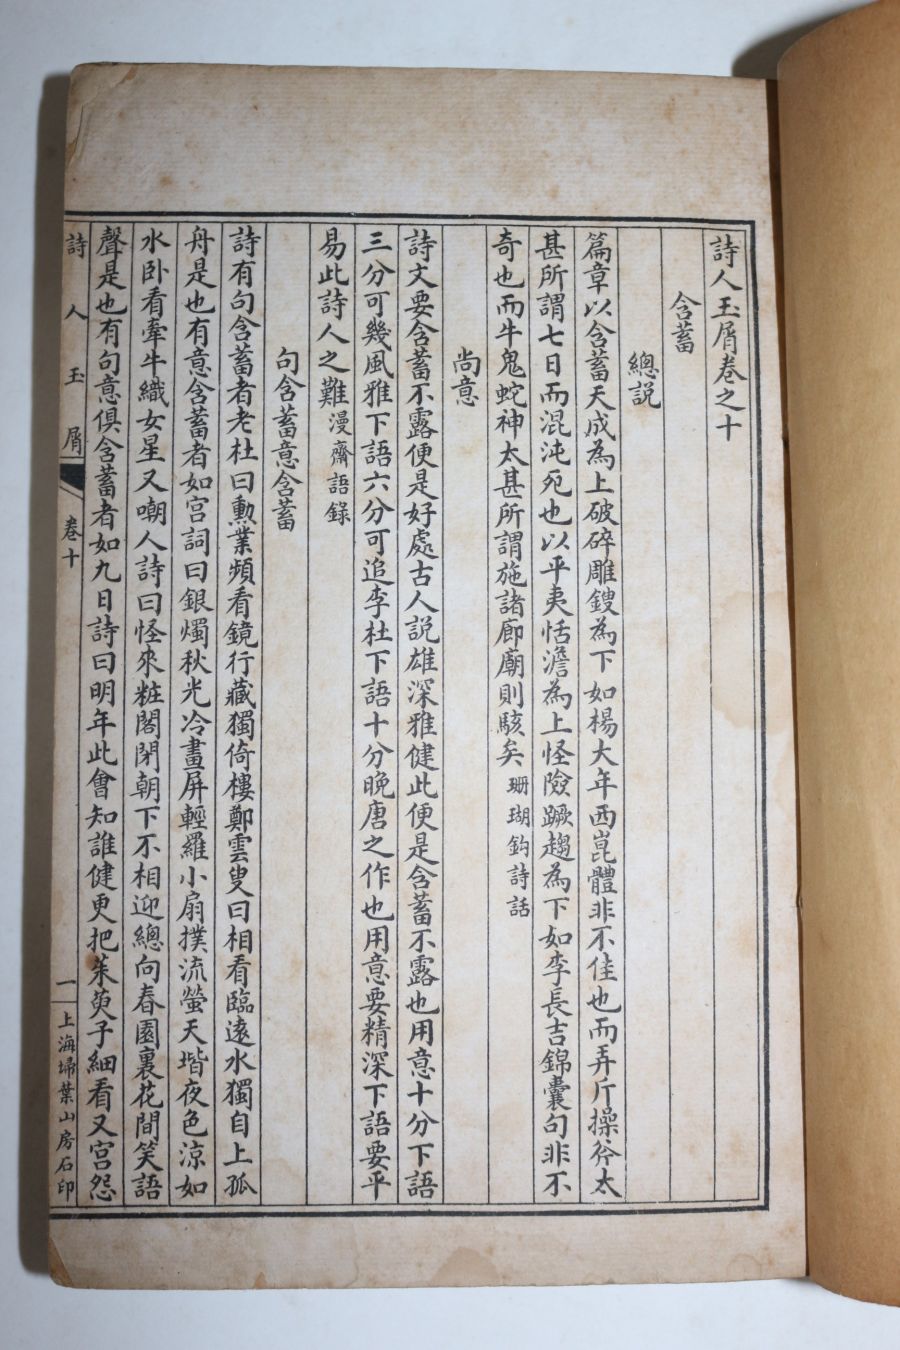 詩人玉屑卷之十
含蓄
總説
篇章以含蓄天成為上破碎雕鎪為下如楊大年西崑體非不佳也而弄斤操斧太
甚所謂七日而混沌死也以平夷恬澹為上怪險蹶趨為下如李長吉錦囊句非不
奇也而牛鬼蛇神太甚所謂施諸廊廟則駭矣珊瑚鈎詩話
尚意
詩文要含蓄不露便是好處古人説雄深雅健此便是含蓄不露也用意十分下語
三分可幾風雅下語六分可追李杜下語十分晚唐之作也用意要精深下語要平
易此詩人之難漫齋語錄
句含蓄意含蓄
詩有句含蓄者老杜曰勳業頻看鏡行藏獨倚樓鄭雲叟曰相看臨遠水獨自上孤
舟是也有意含蓄者如宮詞曰銀燭秋光冷畫屏輕羅小扇撲流螢天堦夜色涼如
水卧看牽牛織女星又嘲人詩曰怪來粧閣閉朝下不相迎總向春園裏花間笑語
聲是也有句意俱含蓄者如九日詩曰明年此會知誰健更把茱萸子細看又宮怨
詩人玉屑 卷十 一 上海埽葉山房石印